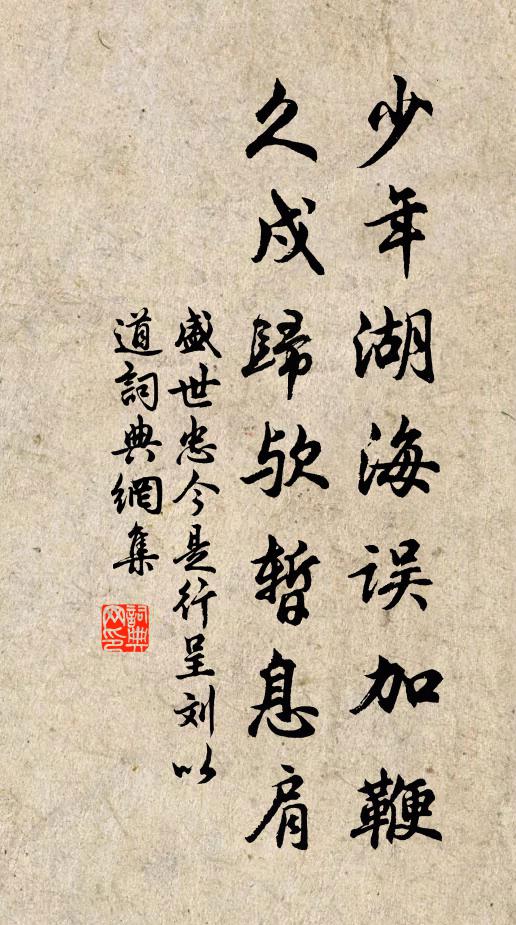 少年湖海误加鞭
久戍歸欤暂息肩
盛世忠今是行呈刘以
道詞典網集
詞典
网印